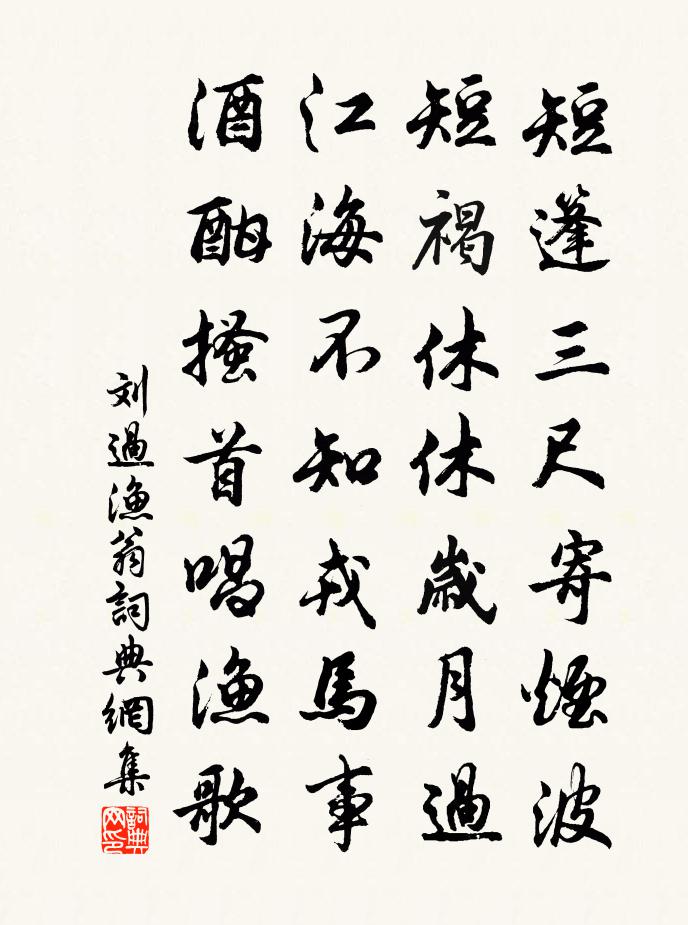 短蓬三尺寄煙波
短褐休休歲月過
江海不知戎馬事
酒酣搔首唱漁歌
刘過漁翁詞典網集
詞典網印